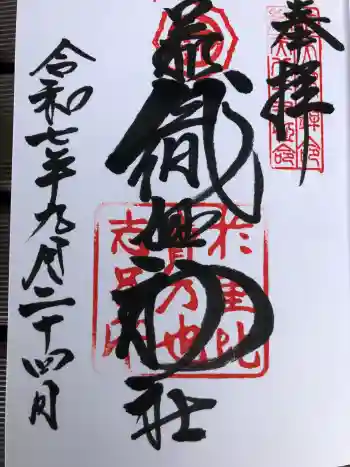 奉拝
織姫神社
令和七年九月二十四日
於里比
賣乃也
志呂印